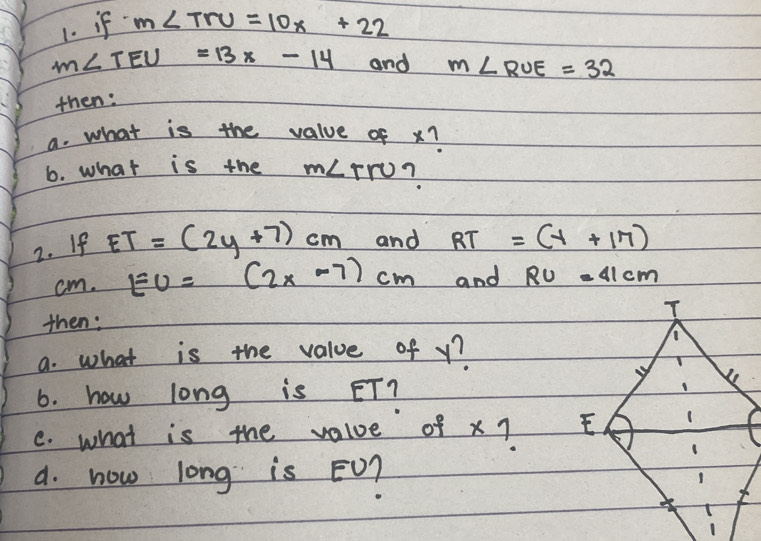 1. if m∠TrU = 10x + 22
m∠TEU = 13x - 14 and m∠RUE = 32
then:
a. what is the value of x?
b. what is the m∠TrU?
2. If ET = (2y +7) cm and RT = (y + 17)
cm. EU = (2x -7) cm and RU = 41cm
then:
a. what is the value of y?
b. how long is ET?
c. what is the value of x?
d. how long is EU?
T
E